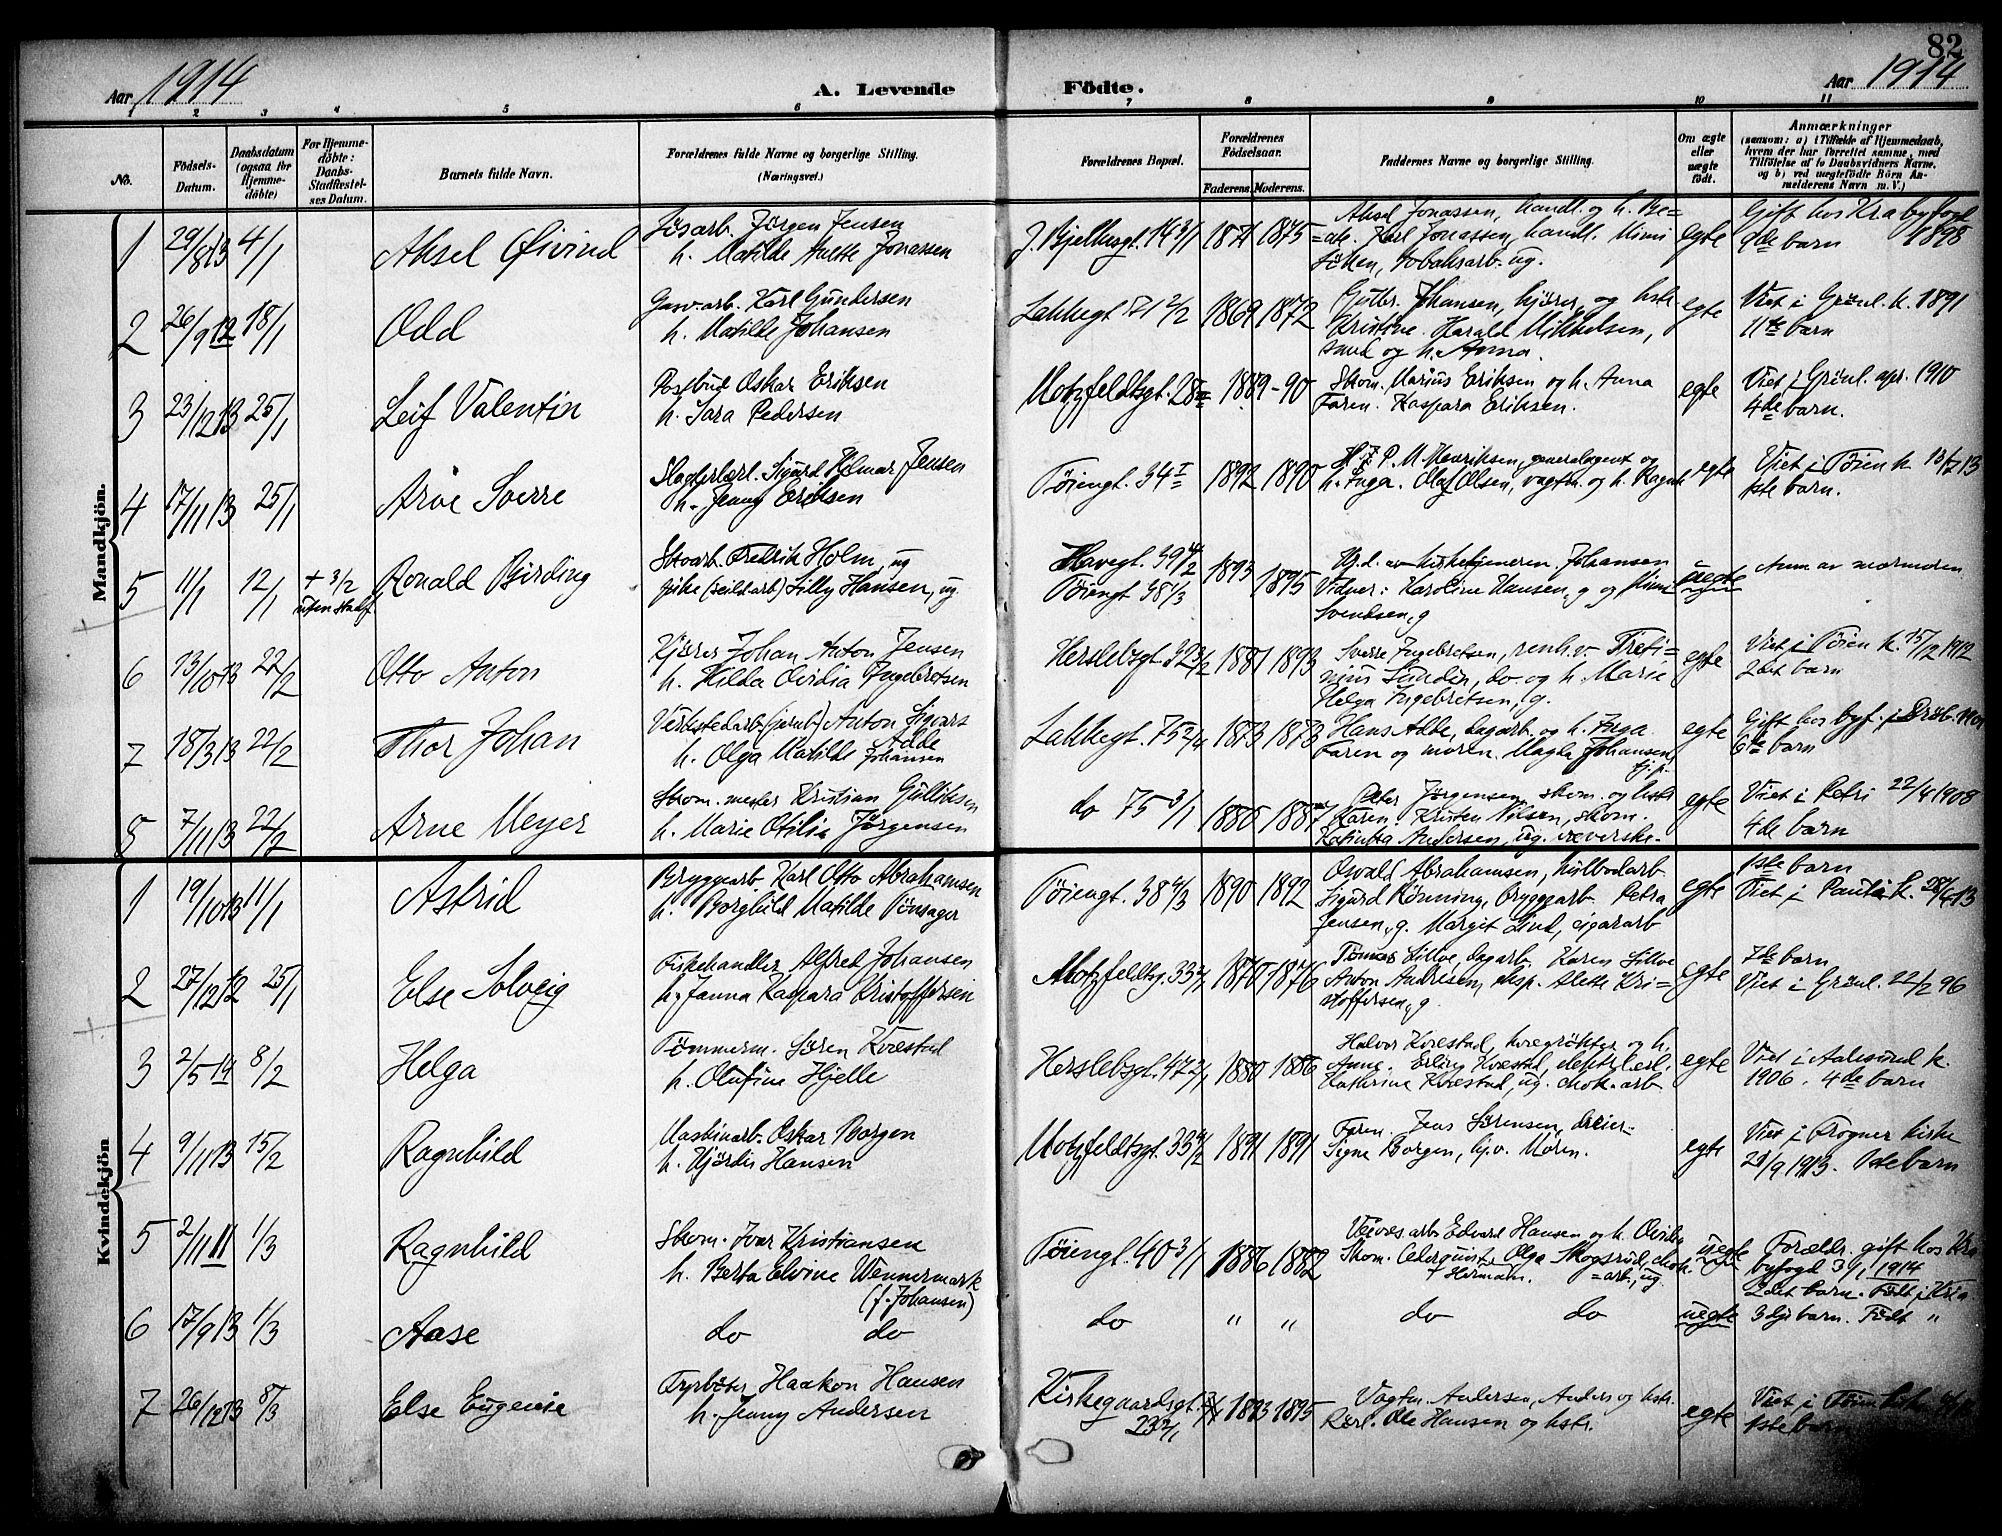 82
Aar 1914
A. Levende Födte.
Aar 1914
1 2 3 4 5 6 7 8 9 10 11
No.
Födsels-Datum.
Daabsdatum (ogsaa for Hjemmedöbte)
For Hjemmedöbte: Daabs-Stadfæstelses Datum.
Barnets fulde Navn.
Forældrenes fulde Navne og borgerlige Stilling.
(Næringsvei.)
Forældrenes Bopæl.
Forældrenes Födselsaar.
Faderens. Moderens.
Faddernes Navne og borgerlige Stilling.
Om ægte eller uægte født.
Anmærkninger
(saasom: a) i Tilfælde af Hjemmedaab, hvem der har forrettet samme, med Tilföielse af to Daabsvidners Navne, og b) ved uægtefödte Börn Anmelderens Navn m. V.)
Mandkjön.
1 29/8 13 4/1 Aksel Øivind
Jörgen Jensen
h. Matilde Anette Jonassen
J. Bjelkesgt. 14 3/1 1871 1875
Aksel Jonassen, handl. og h. Be=
ate. Karl Jonassen, handl. Mimi
, tobaksarb. ug.
egte
Gift hos Kra byfogd
9de barn 1898
2 26/9 12 18/1 Odd
Garv.arb. Karl Gundersen
h. Matilde Johansen
Lakkegt 71 2/2 1869 1872
Johansen, kjører, og hstr
Kristine. Harald Mikkelsen,
smed og h. Anna.
egte
Viet i Grönl. k. 1891
11te barn
3 23/12 13 25/1 Leif Valentin
Postbud Oskar Eriksen
h. Sara Pedersen
Motzfeldtsgt. 28 II 1889 -90
Skom. Marius Eriksen og h. Anna
Faren. Kaspara Eriksen.
egte
Viet i Grönl. apr. 1910
4de barn.
4 17/11 13 25/1 Arve Sverre
Slagterlærl. Sigurd Hilmar Jensen
h. Jenny Eriksen
Töiengt. 34 I 1892 1890
P. M. Henriksen, generalagent og
h. Inga. Olaf Olsen, vagtm. og h. Ragnh
egte
Viet i Töien k. 13/7 13
1ste barn.
5 11/1 12/1 + 3/2 uten stadf Ronald Birding
Skoarb. Fredrik Holm, ug
pike Lilly Hansen, ug
Havegt. 39 4/2
Töiengt 38 4/3
1893 1895
Hj.d. av kirketjeneren Johansen
Vidner: Karoline Hansen, g og Mimi
Svendsen, g
uegte
Anm av mormoren
6 13/10 13 22/2 Otto Anton
Kjører Johan Anton Jensen
h. Hilda Ovidia Ingebretsen
Herslebsgt. 32 3/2 1881 1893
Sverre Ingebretsen, renh.v.
Sundin, do og h. Marie
Helga Ingebretsen, g.
egte
Viet i Töien k. 15/12 1912
2det barn
7 18/3 13 22/2 Thor Johan
Verkstedarb. (jernb) Anton Sigvart
Adde
h. Olga Matilde Johansen
Lakkegt. 75 2/4 1873 1873
Hans Adde, dagarb. og h. Inga.
Faren og moren. Magda Johansen,
tj.p.
egte
Gift hos byf. i Dröb.
6te barn
8 7/11 13 22/2 Arne Meyer
Skom.mester Kristian Gulliksen
h. Marie Otilia Jörgensen
do 75 3/1 1880 1887
Peter Jörgensen, skom. og hstr
Karen. Kristen Nilsen, skom.
Katinka Andersen, ug. væverske.
egte
Viet i Petri 22/4 1908
4de barn
Kvindekjön
1 19/10 13 11/1 Astrid
Bryggearb Karl Otto Abrahamsen
h. Borghild Matilde Pönsager
Töiengt. 38 4/3 1890 1892
Osvald Abrahamsen,
Sigurd Rönning, Bryggarb. Petra
Jensen, g. Margit Lind, cigararb
egte
1ste barn
Viet i Paulus k. 28/4 13
2 27/12 12 25/1 Else Solveig
Fiskehandler Alfred Johansen
h. Janna Kaspara Kristoffersen
Motzfeldtsg. 33 1870 1876
Tomas Lillve, dagarb, Karen Lillve
Anton Andresen, eksp. Alette Kri=
stoffersen, g.
egte
7de barn
Viet i Grönl. 22/2 96
3 2/5 8/2 Helga
Tömmerm. Sören Kvæstad
h. Olufine Hjelle
Herslebsgt. 47 2/1 1880 1886
Halvor Kvæstad, kvegrökter og h.
Anne. Erling Kvæstad,
Kathrine Kvæstad, ug. chok.arb
egte
Viet i Aalesund k.
1906. 4de barn
4 9/11 13 15/2 Ragnhild
Maskinarb. Oskar Borgen
h. Hjördis Hansen
Motzfeldtsgt. 33 4/2 1891 1891
Faren. Jens Sörensen, dreier
Signe Borgen, hj.v. Moren.
egte
Viet i Frogner kirke
21/9 1913. 1ste barn
5 2/11 11 1/3 Ragnhild
Skom. Ivar Kristiansen
h. Berta Elvine Wennermark
(f. Johansen)
Töiengt. 40 3/1 1886 1882
arb Edvard Hansen og h.
Skom. Cederquist, Olga Skogsrud, chok.
+ Herman. =arb, ug.
uegte
Forældr. gift hos Kra
byfogd 3/1 1914
2det barn. Födt i Kria.
6 17/9 13 1/3 Aase
do do
do " " do do
uegte
3dje barn. Födt "
7 26/12 13 8/3 Else Eugenie
Fyrböter Haakon Hansen
h. Jenny Andersen
Kirkegaardsgt.
23 2/1
1893 1895
Vogtm. Andersen, Anders og hstr.
Ole Hansen og hstr.
egte
Viet i Töien kirke
1ste barn